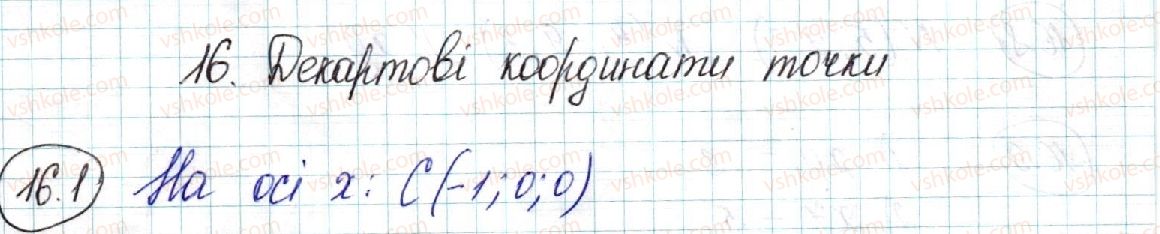 16. Декартові координати точки
16.1 На осі x: C(-1;0;0)